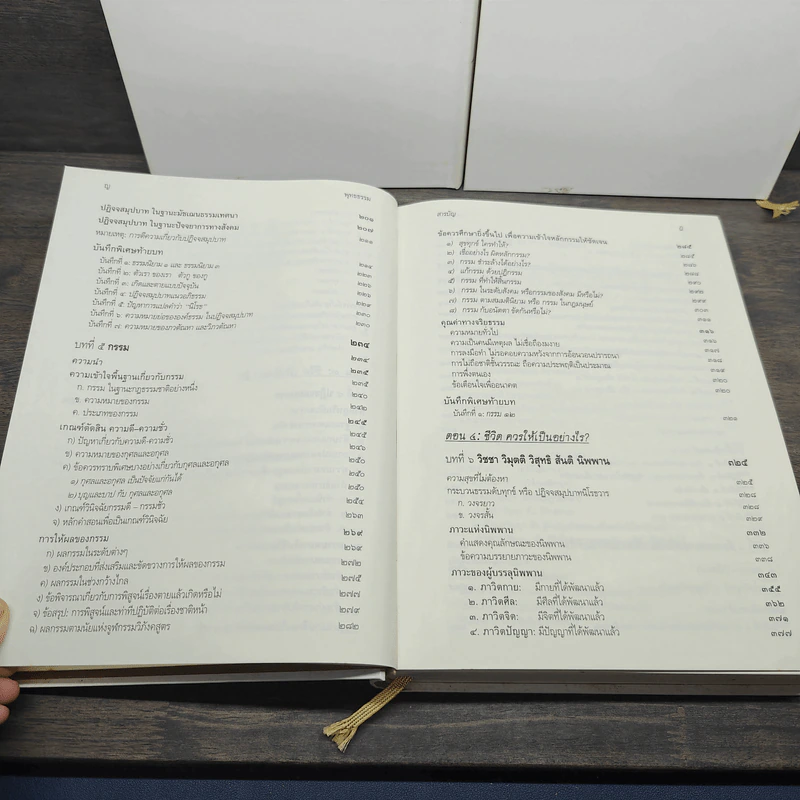 ญ
พุทธธรรม
ปฏิจจสมุปบาท ในฐานะมัชเฌนธรรมเทศนา ๒๐๑
ปฏิจจสมุปบาท ในฐานะปัจจยาการทางสังคม ๒๐๗
หมายเหตุ: การตีความเกี่ยวกับปฏิจจสมุปบาท ๒๑๑
บันทึกพิเศษท้ายบท
บันทึกที่ ๑: ธรรมนิยาม ๑ และ ธรรมนิยาม ๓ ๒๑๔
บันทึกที่ ๒: ตัวเรา ของเรา ตัวกู ของกู
บันทึกที่ ๓: เกิดและตายแบบปัจจุบัน
บันทึกที่ ๔: ปฏิจจสมุปบาทแนวอภิธรรม
บันทึกที่ ๕: ปัญหาการแปลคำว่า "นิโรธ"
บันทึกที่ ๖: ความหมายย่อขององค์ธรรม ในปฏิจจสมุปบาท ๒๓๐
บันทึกที่ ๗: ความหมายของภวตัณหา และวิภวตัณหา ๒๓๐
บทที่ ๕ กรรม ๒๓๔
ความนำ ๒๓๔
ความเข้าใจพื้นฐานเกี่ยวกับกรรม ๒๓๕
ก. กรรม ในฐานะกฎธรรมชาติอย่างหนึ่ง ๒๓๕
ข. ความหมายของกรรม ๒๔๐
ค. ประเภทของกรรม ๒๔๒
เกณฑ์ตัดสิน ความดี-ความชั่ว ๒๔๕
ก) ปัญหาเกี่ยวกับความดี-ความชั่ว ๒๔๕
ข) ความหมายของกุศลและอกุศล ๒๔๖
ค) ข้อควรทราบพิเศษบางอย่างเกี่ยวกับกุศลและอกุศล ๒๕๐
๑) กุศลและอกุศล เป็นปัจจัยแก่กันได้ ๒๕๐
๒) บุญและบาป กับ กุศลและอกุศล ๒๕๐
ง) เกณฑ์วินิจฉัยกรรมดี – กรรมชั่ว ๒๕๔
จ) หลักคำสอนเพื่อเป็นเกณฑ์วินิจฉัย ๒๖๓
การให้ผลของกรรม ๒๖๙
ก) ผลกรรมในระดับต่างๆ ๒๖๙
ข) องค์ประกอบที่ส่งเสริมและขัดขวางการให้ผลของกรรม ๒๗๒
ค) ผลกรรมในช่วงกว้างไกล ๒๗๕
ง) ข้อพิจารณาเกี่ยวกับการพิสูจน์เรื่องตายแล้วเกิดหรือไม่ ๒๗๗
จ) ข้อสรุป: การพิสูจน์และท่าทีปฏิบัติต่อเรื่องชาติหน้า ๒๗๙
ฉ) ผลกรรมตามนัยแห่งจูฬกรรมวิภังคสูตร ๒๘๒
สารบัญ
ข้อควรศึกษายิ่งขึ้นไป เพื่อความเข้าใจหลักกรรมให้ชัดเจน ๒๘๕
๑) สุขทุกข์ ใครทำให้? ๒๘๕
๒) เชื่ออย่างไร ผิดหลักกรรม?
๓) กรรม ชำระล้างได้อย่างไร?
๔) แก้กรรม ด้วยปฏิกรรม
๕) กรรม ที่ทำให้สิ้นกรรม
๖) กรรม ในระดับสังคม หรือกรรมของสังคม มีหรือไม่?
๗) กรรม ตามสมมตินิยาม หรือ กรรม ในกฎมนุษย์ ๒๙๙
๘) กรรม กับอนัตตา ขัดกันหรือไม่? ๓๐๓
คุณค่าทางจริยธรรม
ความหมายทั่วไป ๓๑๖
ความเป็นคนมีเหตุผล ไม่เชื่อถืองมงาย
การลงมือทำ ไม่รอคอยความหวังจากการอ้อนวอนปรารถนา ๓๑๗
การไม่ถือชาติชั้นวรรณะ ถือความประพฤติเป็นประมาณ ๓๑๘
การพึ่งตนเอง
ข้อเตือนใจเพื่ออนาคต ๓๒๐
บันทึกพิเศษท้ายบท
บันทึกที่ ๑: กรรม ๑๒ ๓๒๑
ตอน ๔: ชีวิต ควรให้เป็นอย่างไร?
บทที่ ๖ วิชชา วิมุตติ วิสุทธิ สันติ นิพพาน ๓๒๕
ความสุขที่ไม่ต้องหา ๓๒๕
กระบวนธรรมดับทุกข์ หรือ ปฏิจจสมุปบาทนิโรธวาร ๓๒๘
ก. วงจรยาว ๓๒๘
ข. วงจรสั้น ๓๒๙
ภาวะแห่งนิพพาน ๓๓๒
คำแสดงคุณลักษณะของนิพพาน ๓๓๖
ข้อความบรรยายภาวะของนิพพาน ๓๓๘
ภาวะของผู้บรรลุนิพพาน ๓๔๓
๑. ภาวิตกาย: มีกายที่ได้พัฒนาแล้ว ๓๕๕
๒. ภาวิตศีล: มีศีลที่ได้พัฒนาแล้ว ๓๖๒
๓. ภาวิตจิต: มีจิตที่ได้พัฒนาแล้ว ๓๗๑
๔. ภาวิตปัญญา: มีปัญญาที่ได้พัฒนาแล้ว ๓๗๗